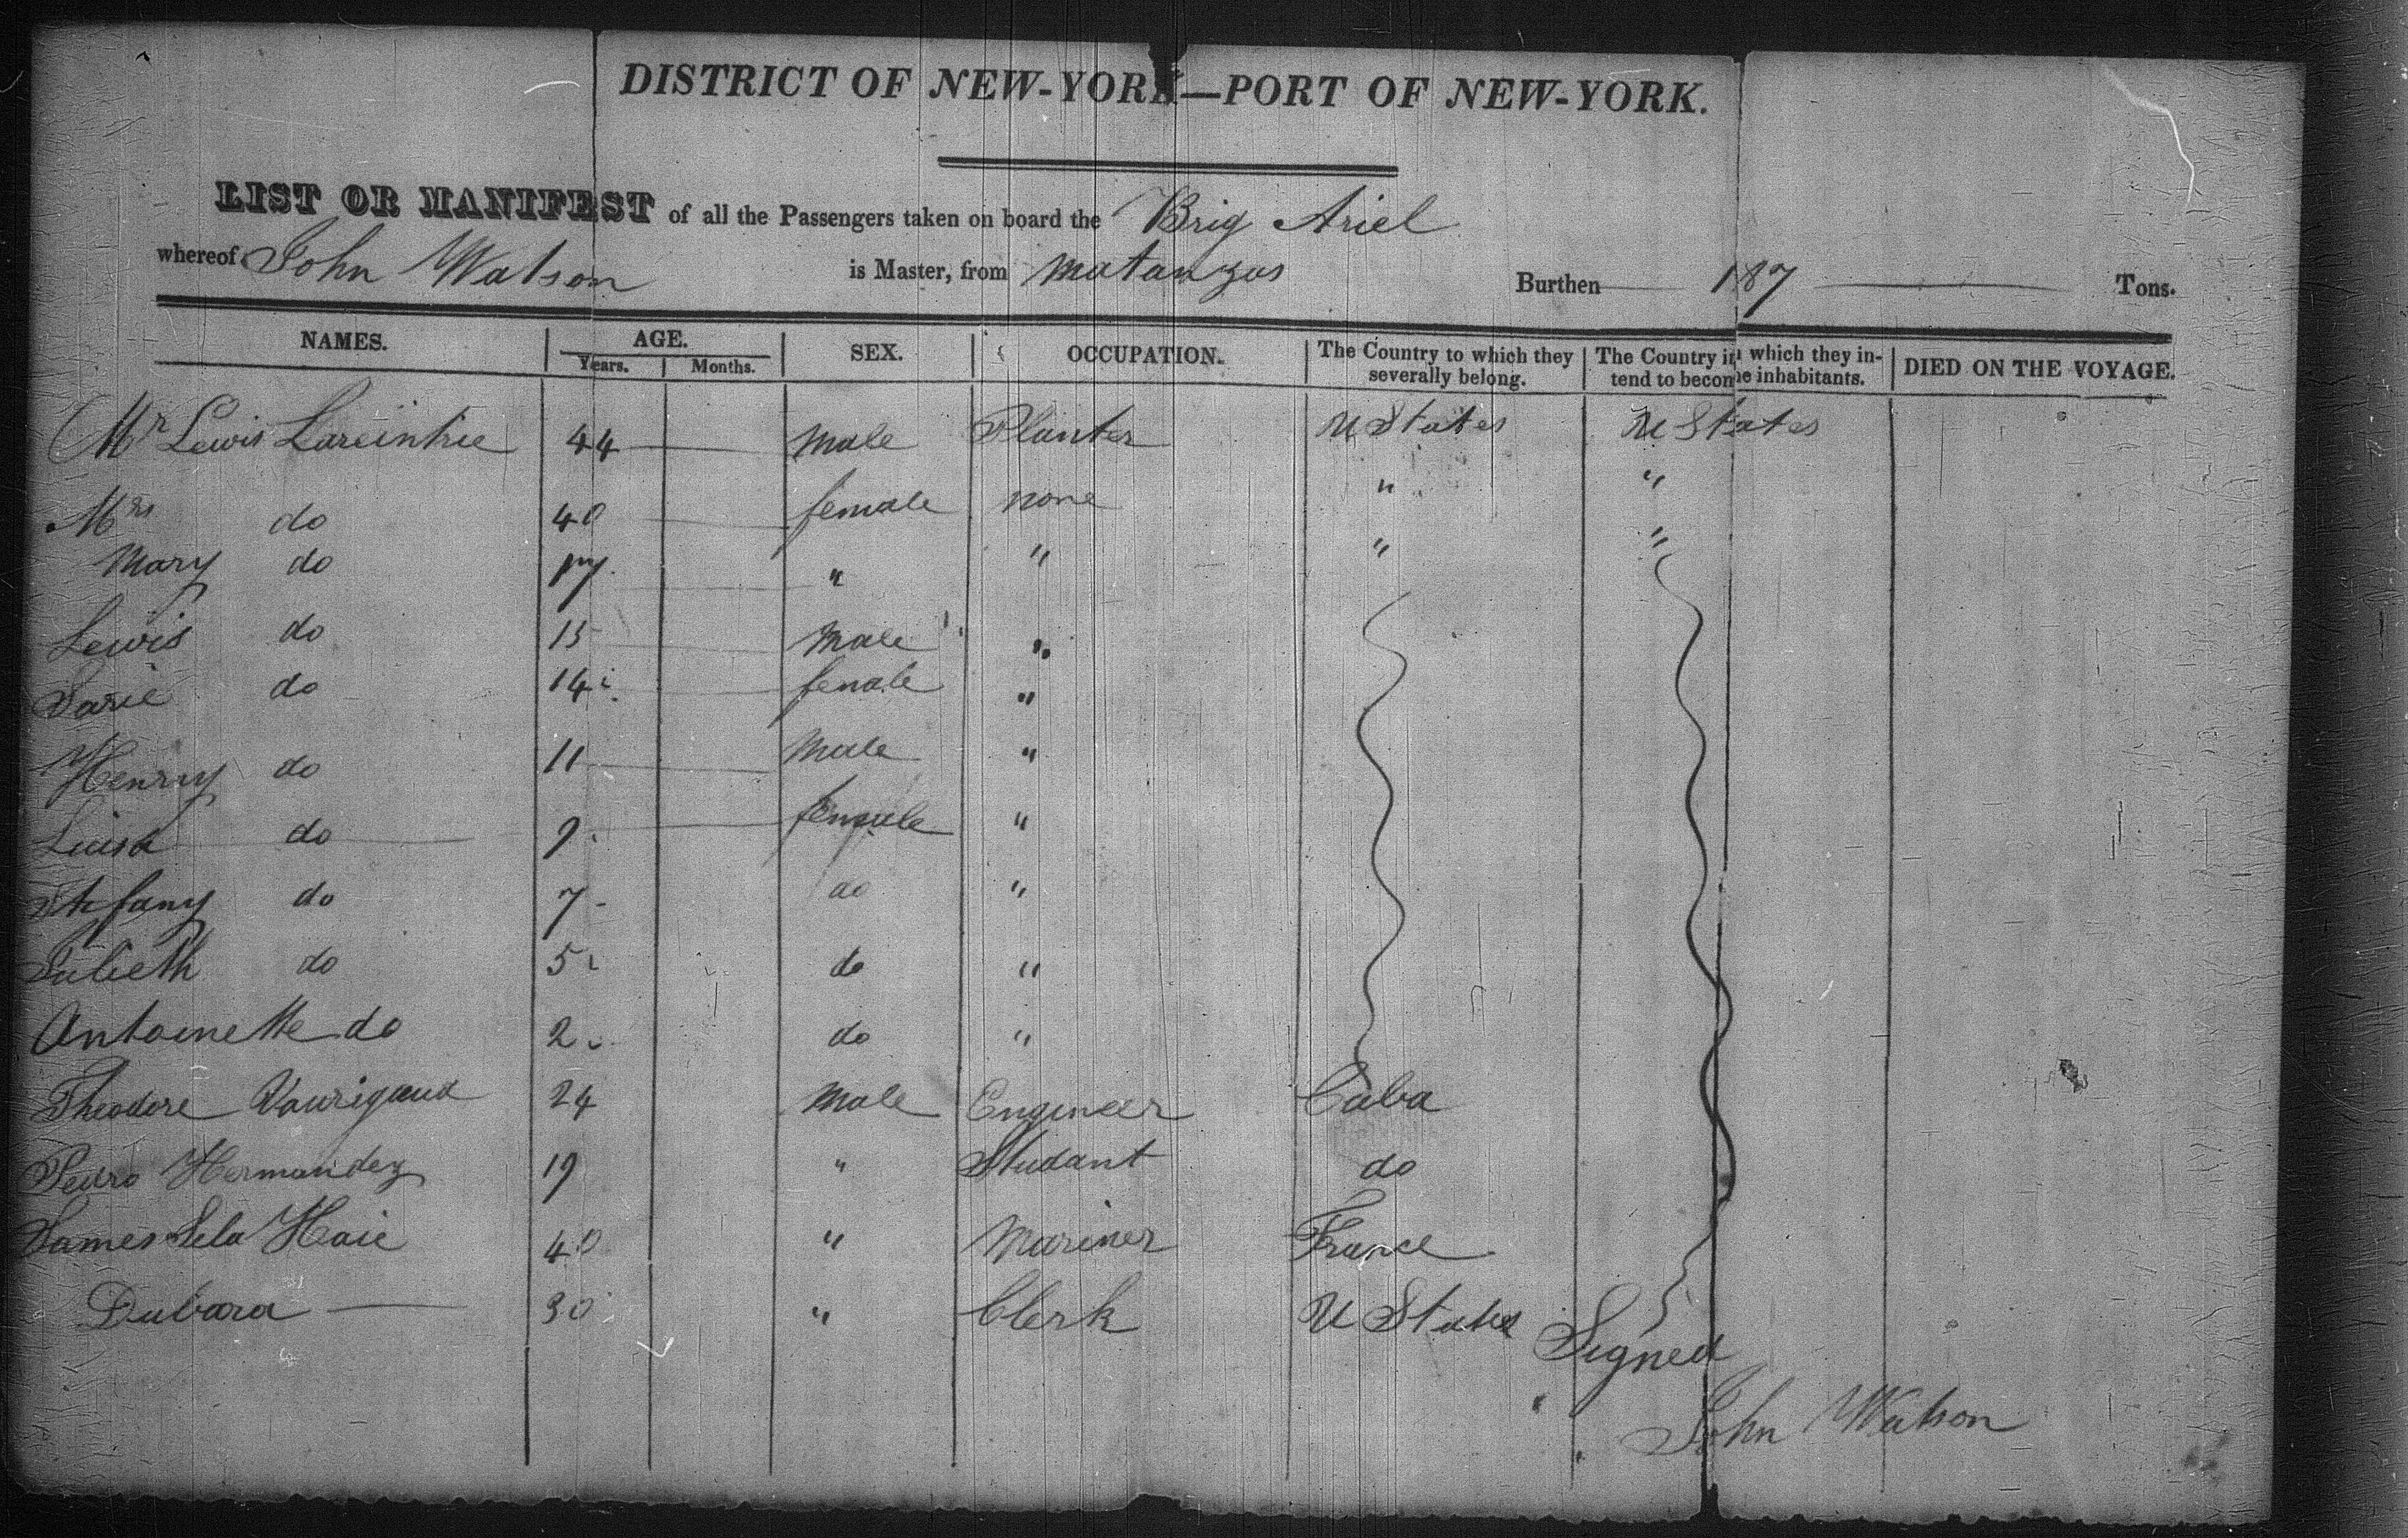 DISTRICT OF NEW-YORK—PORT OF NEW-YORK.
LIST OR MANIFEST of all the Passengers taken on board the Brig Ariel
whereof John Watson is Master, from Matanzas Burthen 187 Tons.
NAMES. AGE. Years. Months. SEX. OCCUPATION. The Country to which they severally belong. The Country in which they intend to become inhabitants. DIED ON THE VOYAGE.
Mr Lewis Lareintrie 44 Male Planter U States U States
Mrs do 40 female none " "
Mary do 17 " " " "
Lewis do 15 Male "
do 14 female "
Henry do 11 Male "
Luisa do 9 female "
Stefany do 7 do "
Julieth do 5 do "
Antoinette do 2 do "
Theodore Vaurigaud 24 Male Engineer Cuba
Pedro Hermandez 19 " Studant do
James Lela Haie 40 " Mariner France
Dubara 30 " Clerk U States
Signed
John Watson